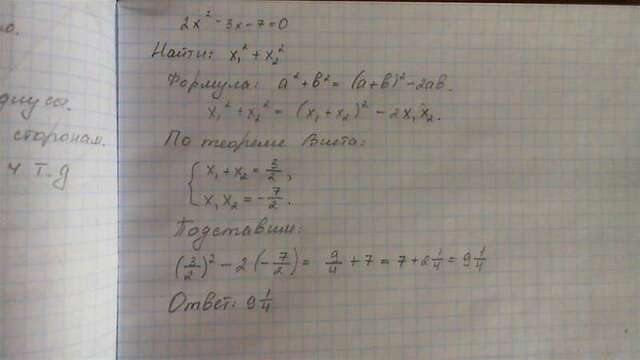 го.
диусы.
сторонам.
и т.д
2x² - 3x - 7 = 0
Найти: x₁² + x₂²
Формула: a² + b² = (a+b)² - 2ab.
x₁² + x₂² = (x₁ + x₂)² - 2x₁x₂.
По теореме Виета:
{ x₁ + x₂ = 3/2,
x₁x₂ = -7/2.
Подставим:
(3/2)² - 2(-7/2) = 9/4 + 7 = 7 + 2 1/4 = 9 1/4
Ответ: 9 1/4